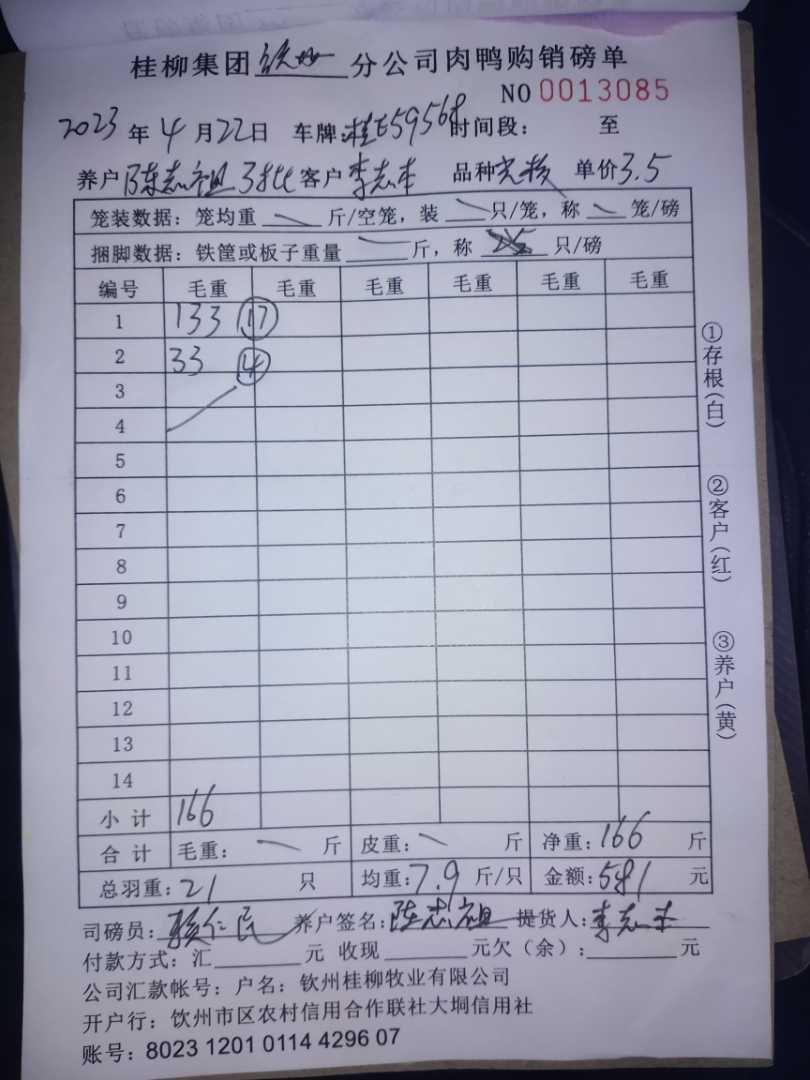 桂柳集团钦州分公司肉鸭购销磅单
NO 0013085
2023年4月22日 车牌:桂E59568时间段: 至
养户陈志祖3批客户李志 品种 单价3.5
笼装数据:笼均重 斤/空笼,装 只/笼,称 笼/磅
捆脚数据:铁筐或板子重量 斤,称 只/磅
编号 毛重 毛重 毛重 毛重 毛重 毛重
1 133 17
2 33 4
3
4
5
6
7
8
9
10
11
12
13
14
小计 166
合计 毛重: 斤 皮重: 斤 净重:166 斤
总羽重:21 只 均重:7.9斤/只 金额:581元
司磅员:仁民 养户签名:陈志祖 提货人:李志
付款方式:汇 元 收现 元欠(余): 元
公司汇款帐号:户名:钦州桂柳牧业有限公司
开户行:钦州市区农村信用合作联社大垌信用社
账号:8023 1201 0114 4296 07
①存根(白)
②客户(红)
③养户(黄)